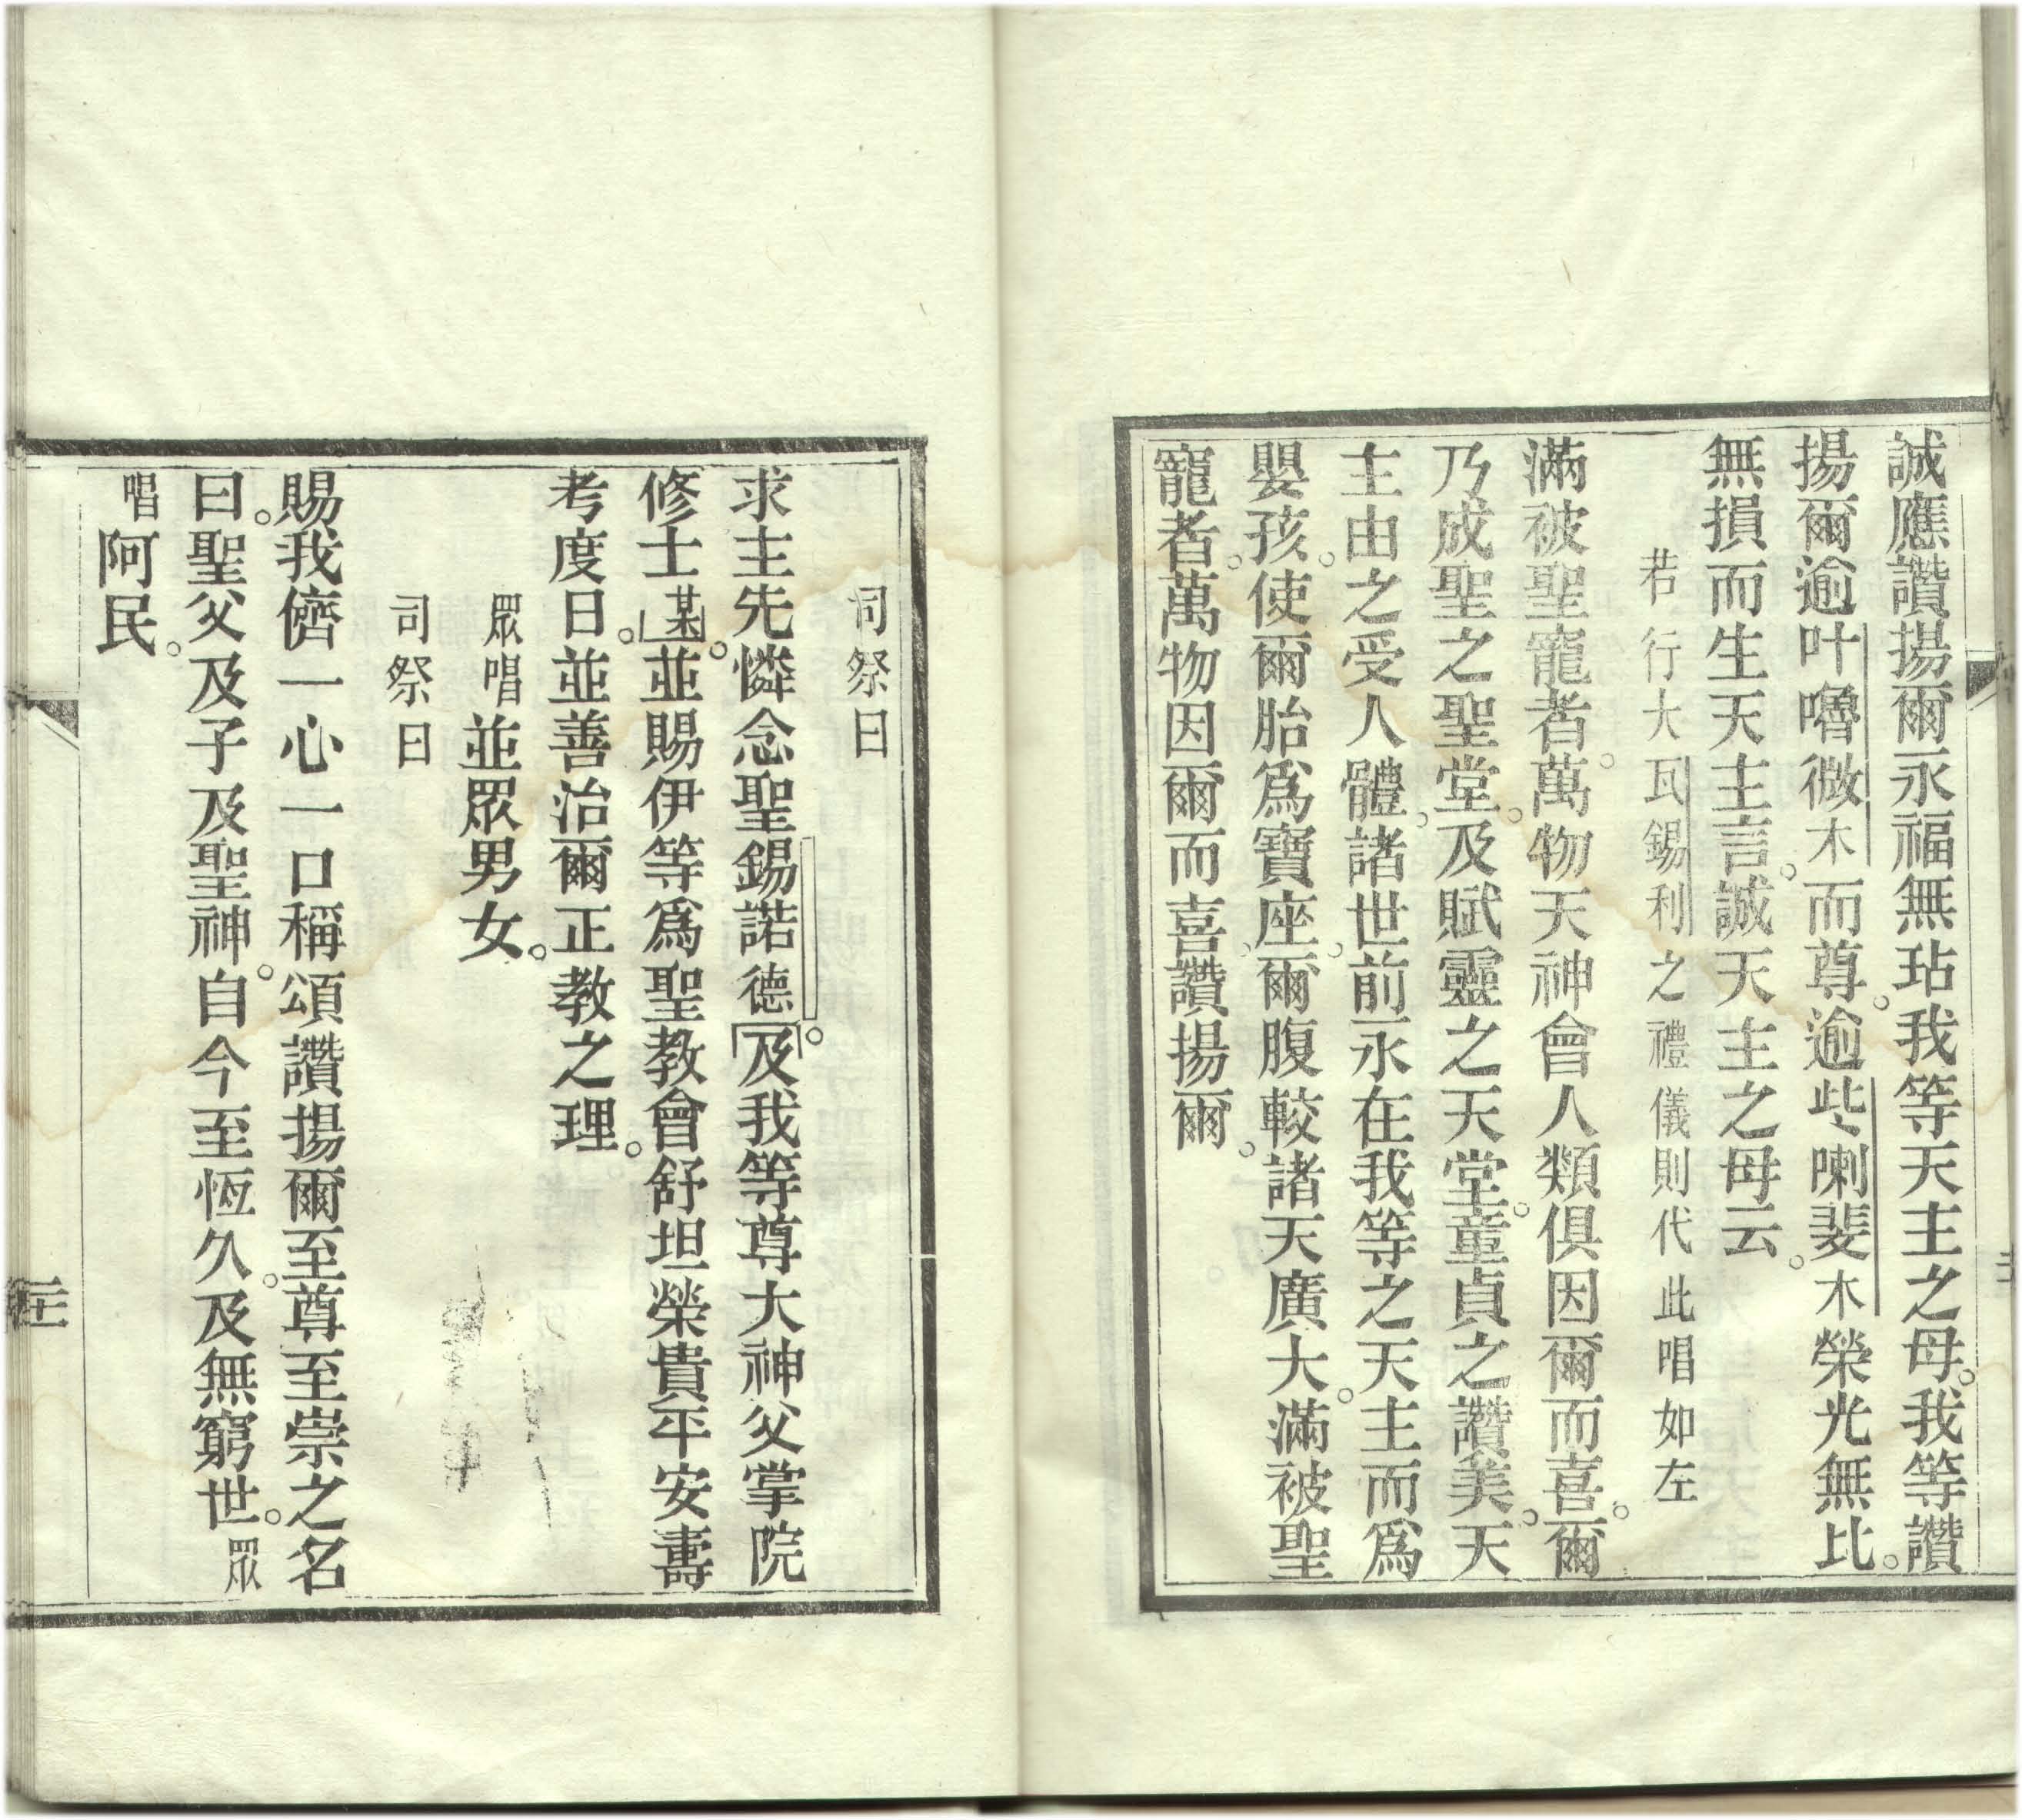 誠應讚揚爾永福無玷我等天主之母。我等讚
揚爾逾叶嚕微木而尊。逾些喇斐木榮光無比。
無損而生天主言。誠天主之母云。
若行大瓦錫利之禮儀則代此唱如左
滿被聖寵者。萬物天神會人類俱因爾而喜。爾
乃成聖之聖堂。及賦靈之天堂。童貞之讚美。天
主由之受人體。諸世前永在我等之天主而爲
嬰孩。使爾胎爲寶座。爾腹較諸天廣大。滿被聖
寵者。萬物因爾而喜。讚揚爾。
司祭曰
求主先憐念聖錫諾德。及我等尊大神父掌院
修士某。並賜伊等爲聖教會舒坦榮貴平安壽
考度日。並善治爾正教之理。
眾唱並眾男女。
司祭曰
賜我儕一心一口稱頌讚揚爾至尊至崇之名
曰。聖父及子及聖神。自今至恆久。及無窮世。眾
唱阿民。